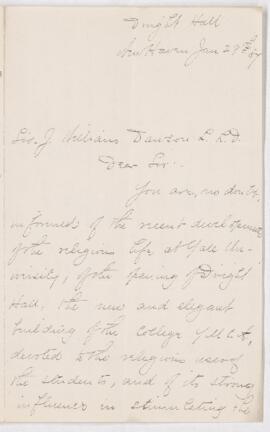 Dwight Hall
New Haven Jan 29th 87
Sir. J. William Dawson L.L.D.
Dear Sir:-
You are, no doubt,
informed of the recent development
of the religious life, at Yale Uni-
versity, of the opening of Dwight
Hall, the new and elegant
building of the College Y.M.C.A,
devoted to the religious uses of
the students, and of its strong
influence in stimulating the